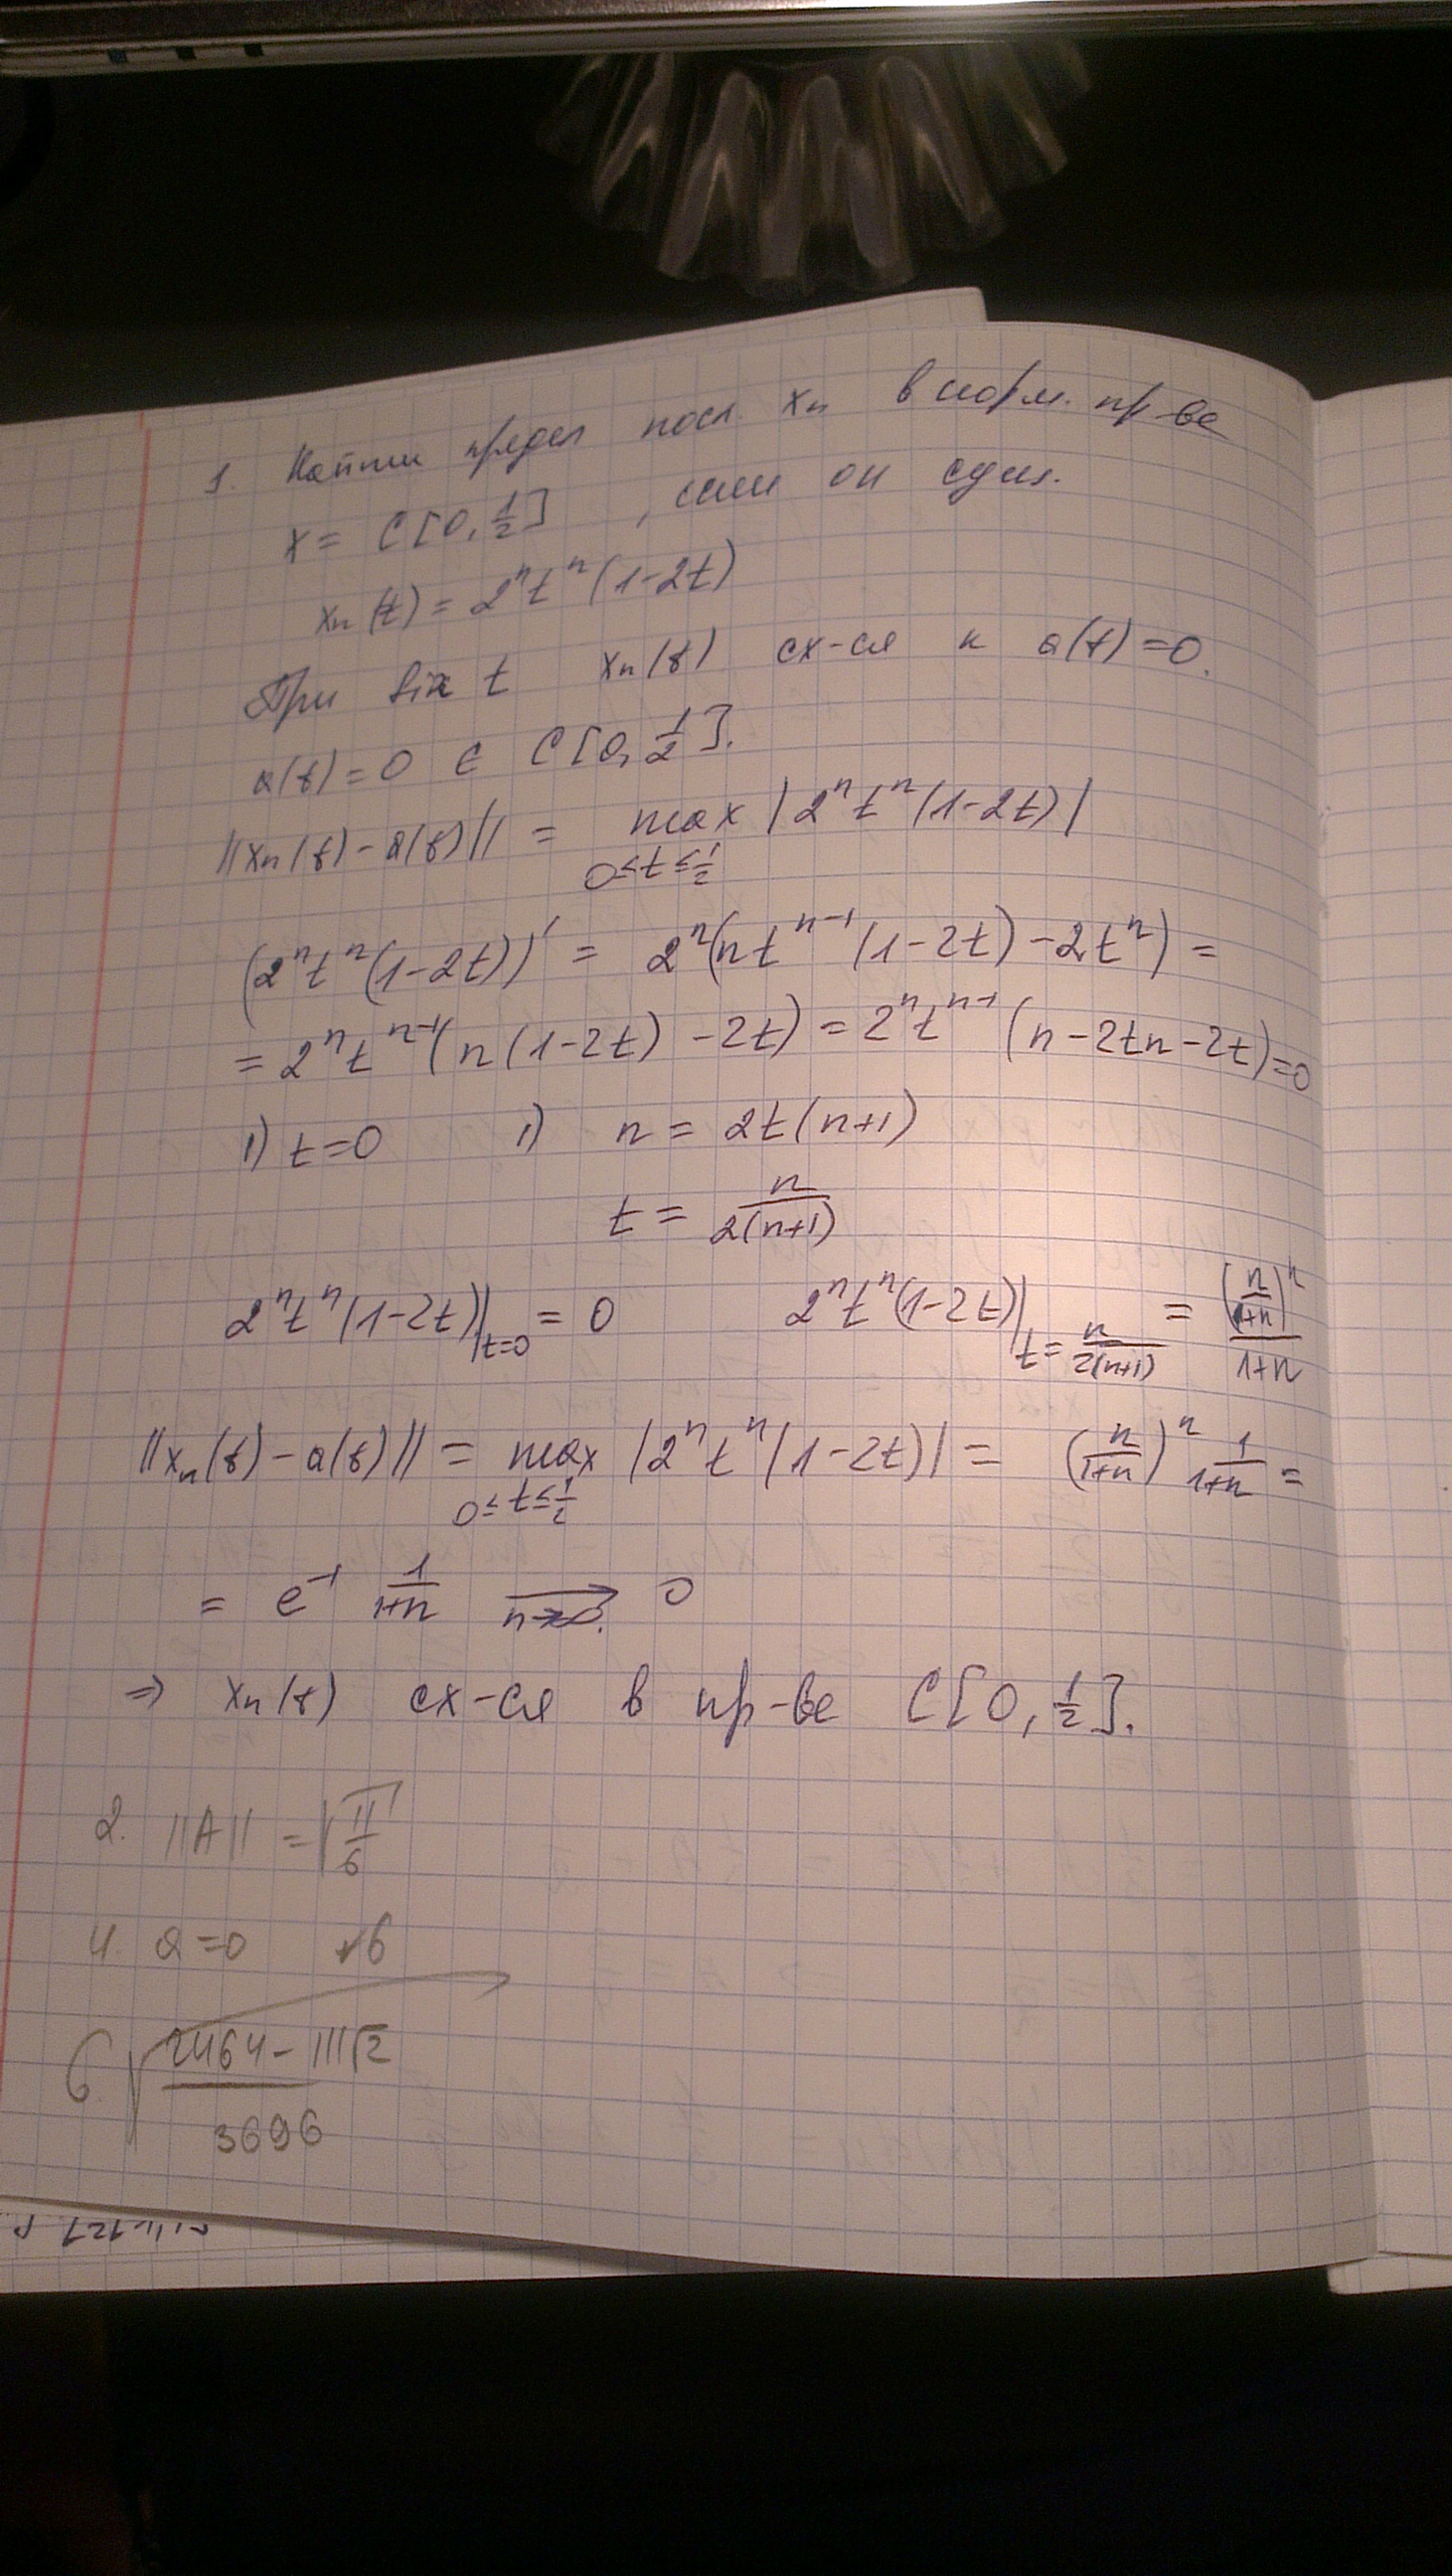 1. Найти предел посл. xₙ в норм. пр-ве
X = C[0, 1/2], если он сущ.
xₙ(t) = 2ⁿtⁿ(1-2t)
При fix t xₙ(t) сх-ся к a(t)=0.
a(t)=0 ∈ C[0, 1/2].
||xₙ(t) - a(t)|| = max_{0≤t≤1/2} |2ⁿtⁿ(1-2t)|
(2ⁿtⁿ(1-2t))' = 2ⁿ(ntⁿ⁻¹(1-2t) - 2tⁿ) =
= 2ⁿtⁿ⁻¹(n(1-2t) - 2t) = 2ⁿtⁿ⁻¹(n - 2tn - 2t) = 0
1) t=0 1) n = 2t(n+1)
t = n/(2(n+1))
2ⁿtⁿ(1-2t)|_{t=0} = 0 2ⁿtⁿ(1-2t)|_{t=n/(2(n+1))} = (n/(1+n))ⁿ/(1+n)
||xₙ(t) - a(t)|| = max_{0≤t≤1/2} |2ⁿtⁿ(1-2t)| = (n/(1+n))ⁿ 1/(1+n) =
= e⁻¹ 1/(1+n) →_{n→∞} 0
⇒ xₙ(t) сх-ся в пр-ве C[0, 1/2].
2. ||A|| = √(11/6)
4. a=0
6. √((2464 - 111√2)/3696)